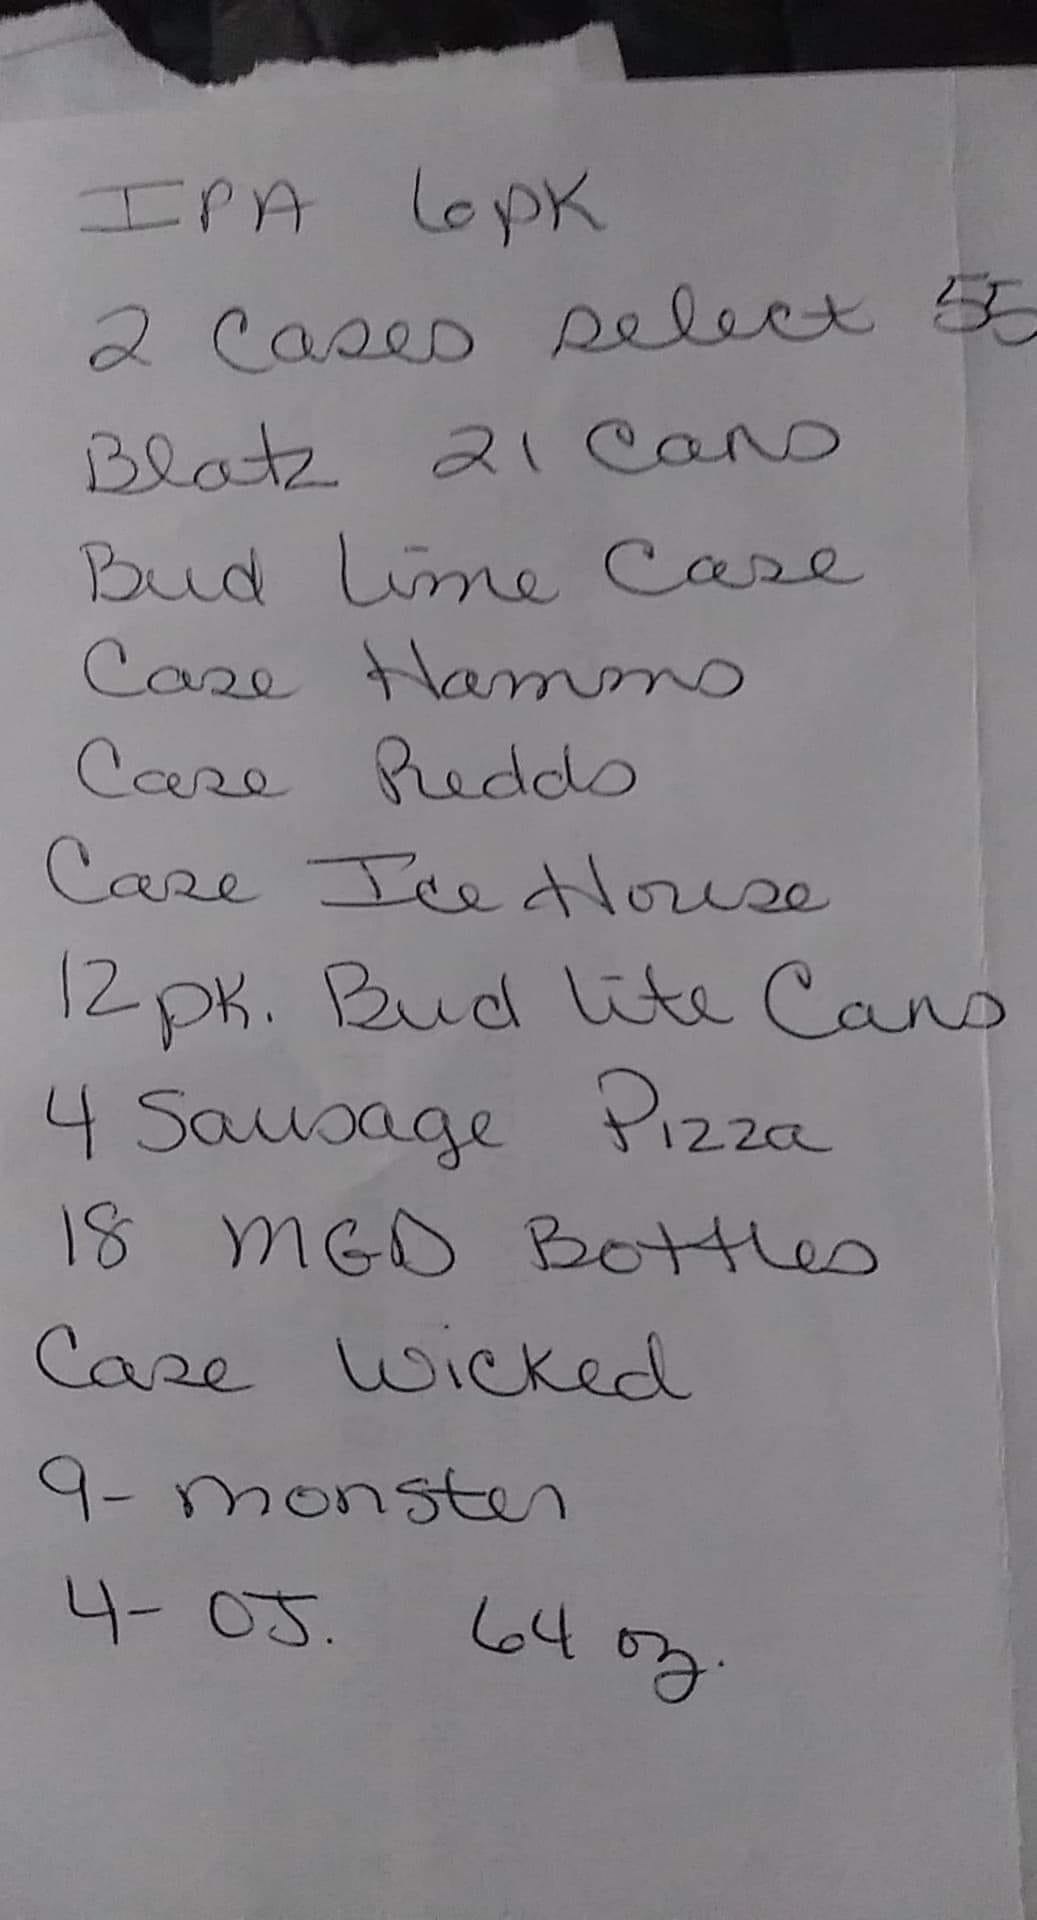 IPA 6pK
2 Cases select 55
Blatz 21 Cans
Bud Lime Case
Case Hamms
Case Redds
Case Ice House
12 pK. Bud Lite Cans
4 Sausage Pizza
18 MGD Bottles
Case Wicked
9- monster
4- OJ. 64 oz.